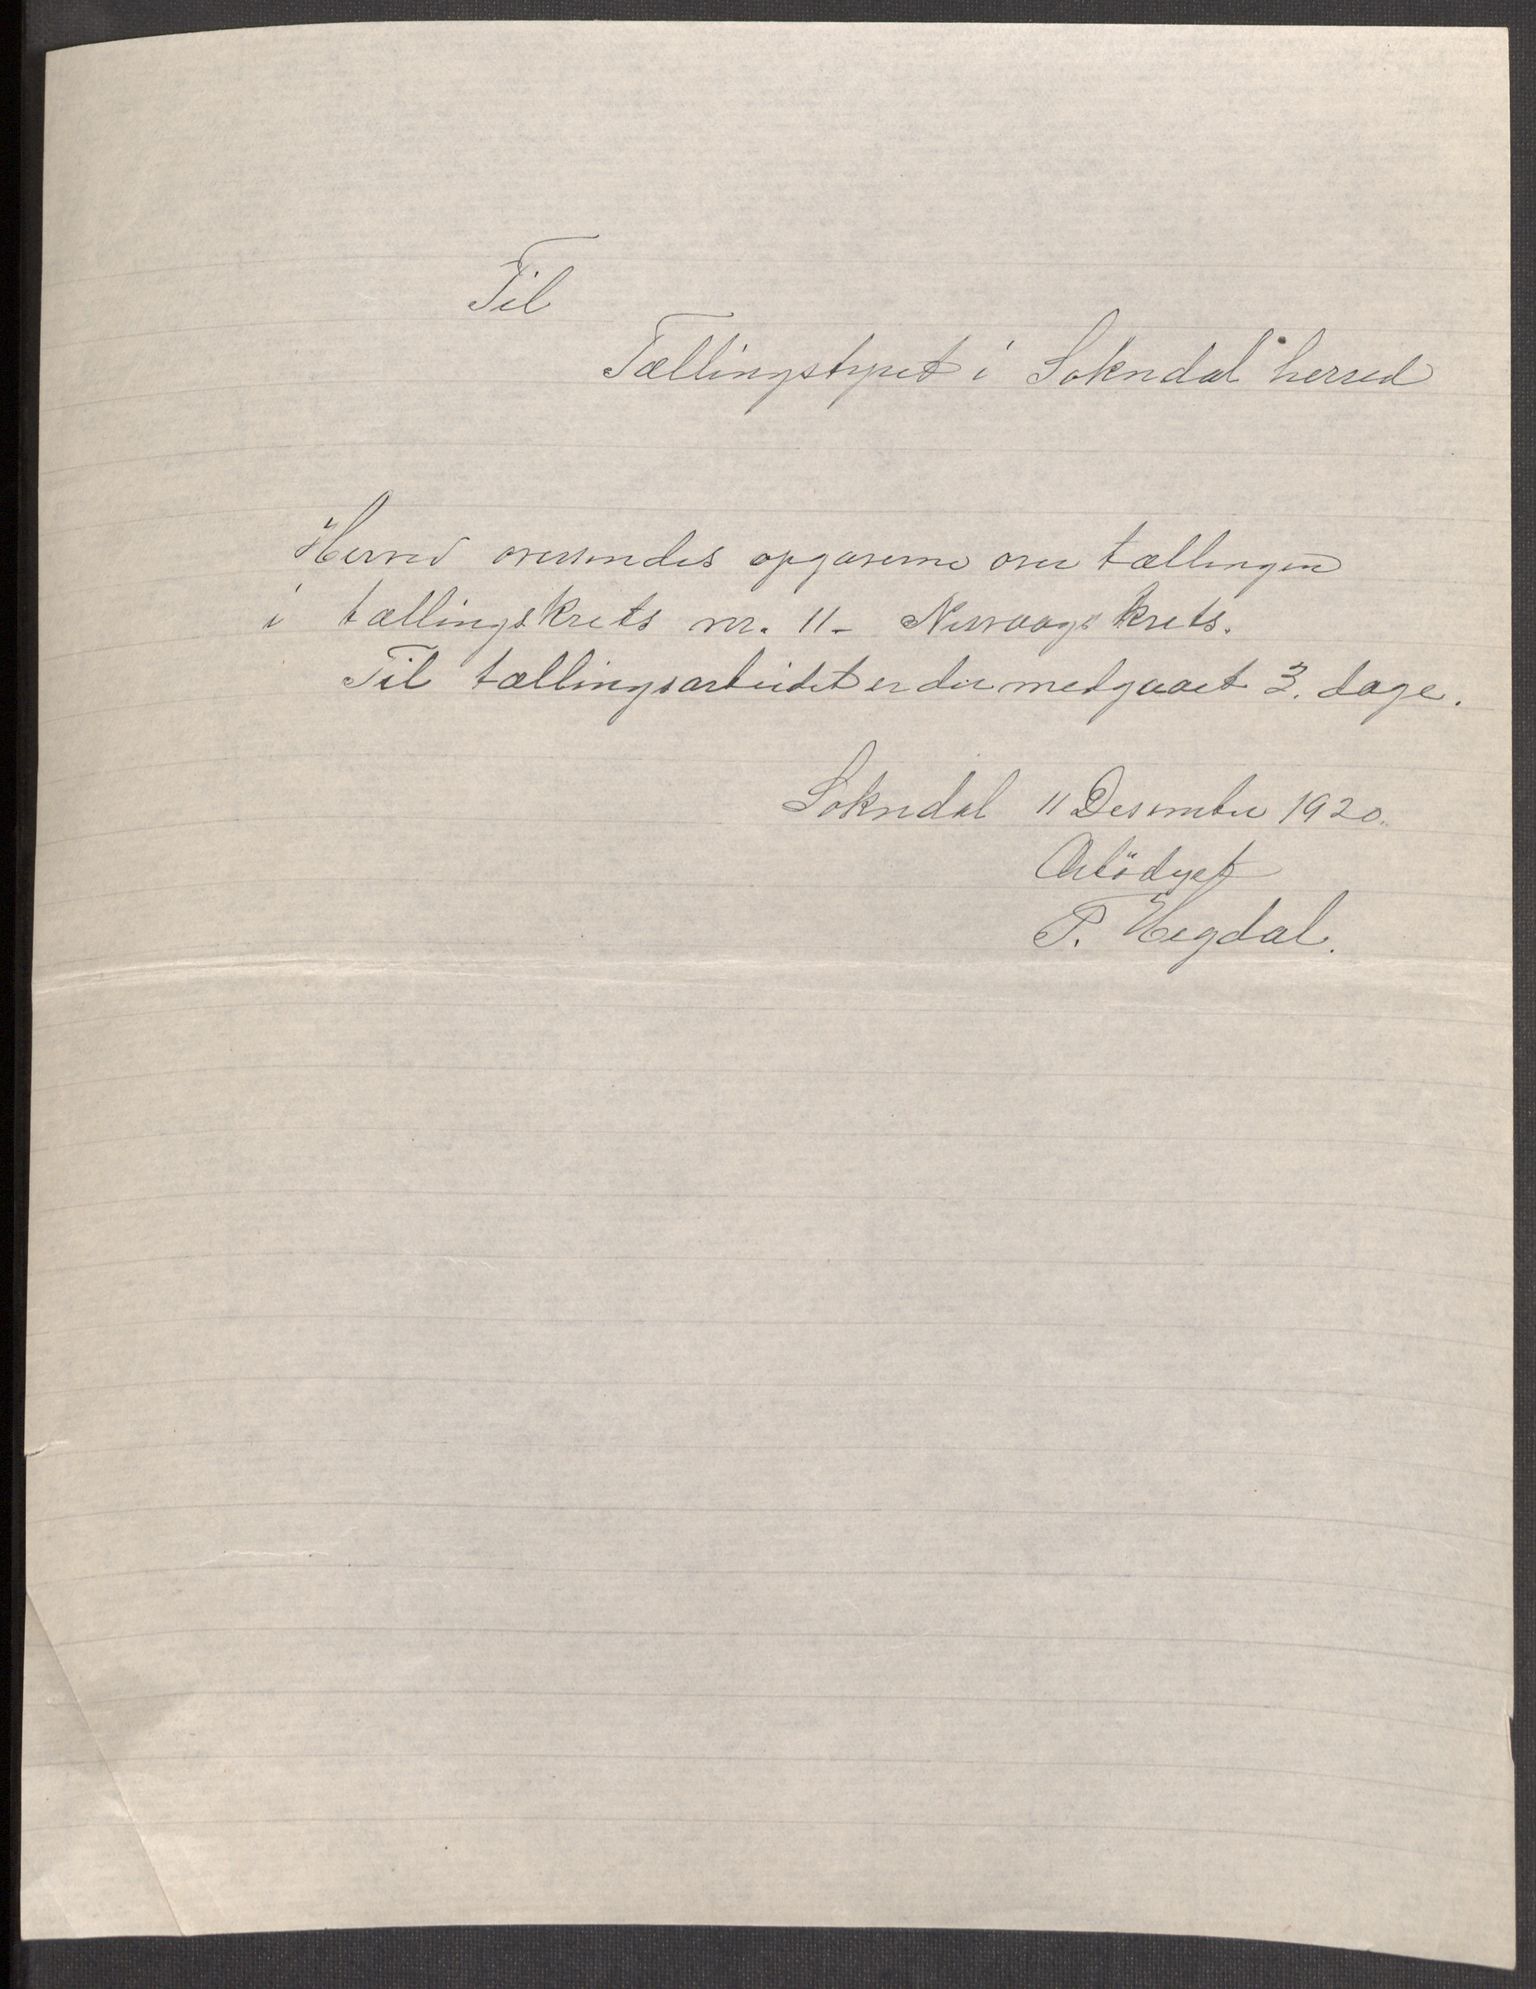 Til
Tællingstyret i Sokndal herred
Herved oversendes opgaverne over tællingen
i tællingskrets nr. 11 - Nesvaags krets.
Til tællingsarbeidet er der medgaaet 3. dage.
Sokndal 11 Desember 1920.
Ærbödigst
P. Hegdal.